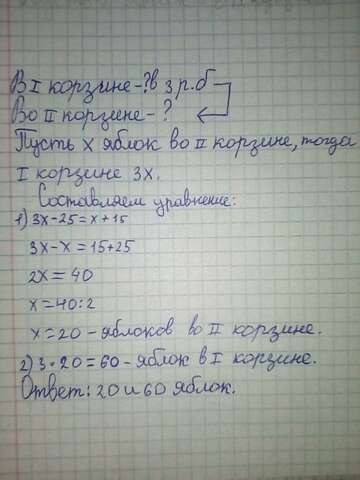 В I корзине-? в 3 р. б
Во II корзине- ?
Пусть x яблок во II корзине, тогда
I корзине 3x.
Составляем уравнение:
1) 3x-25=x+15
3x-x=15+25
2x=40
x=40:2
x=20 - яблоков во II корзине.
2) 3·20=60- яблок в I корзине.
Ответ: 20 и 60 яблок.